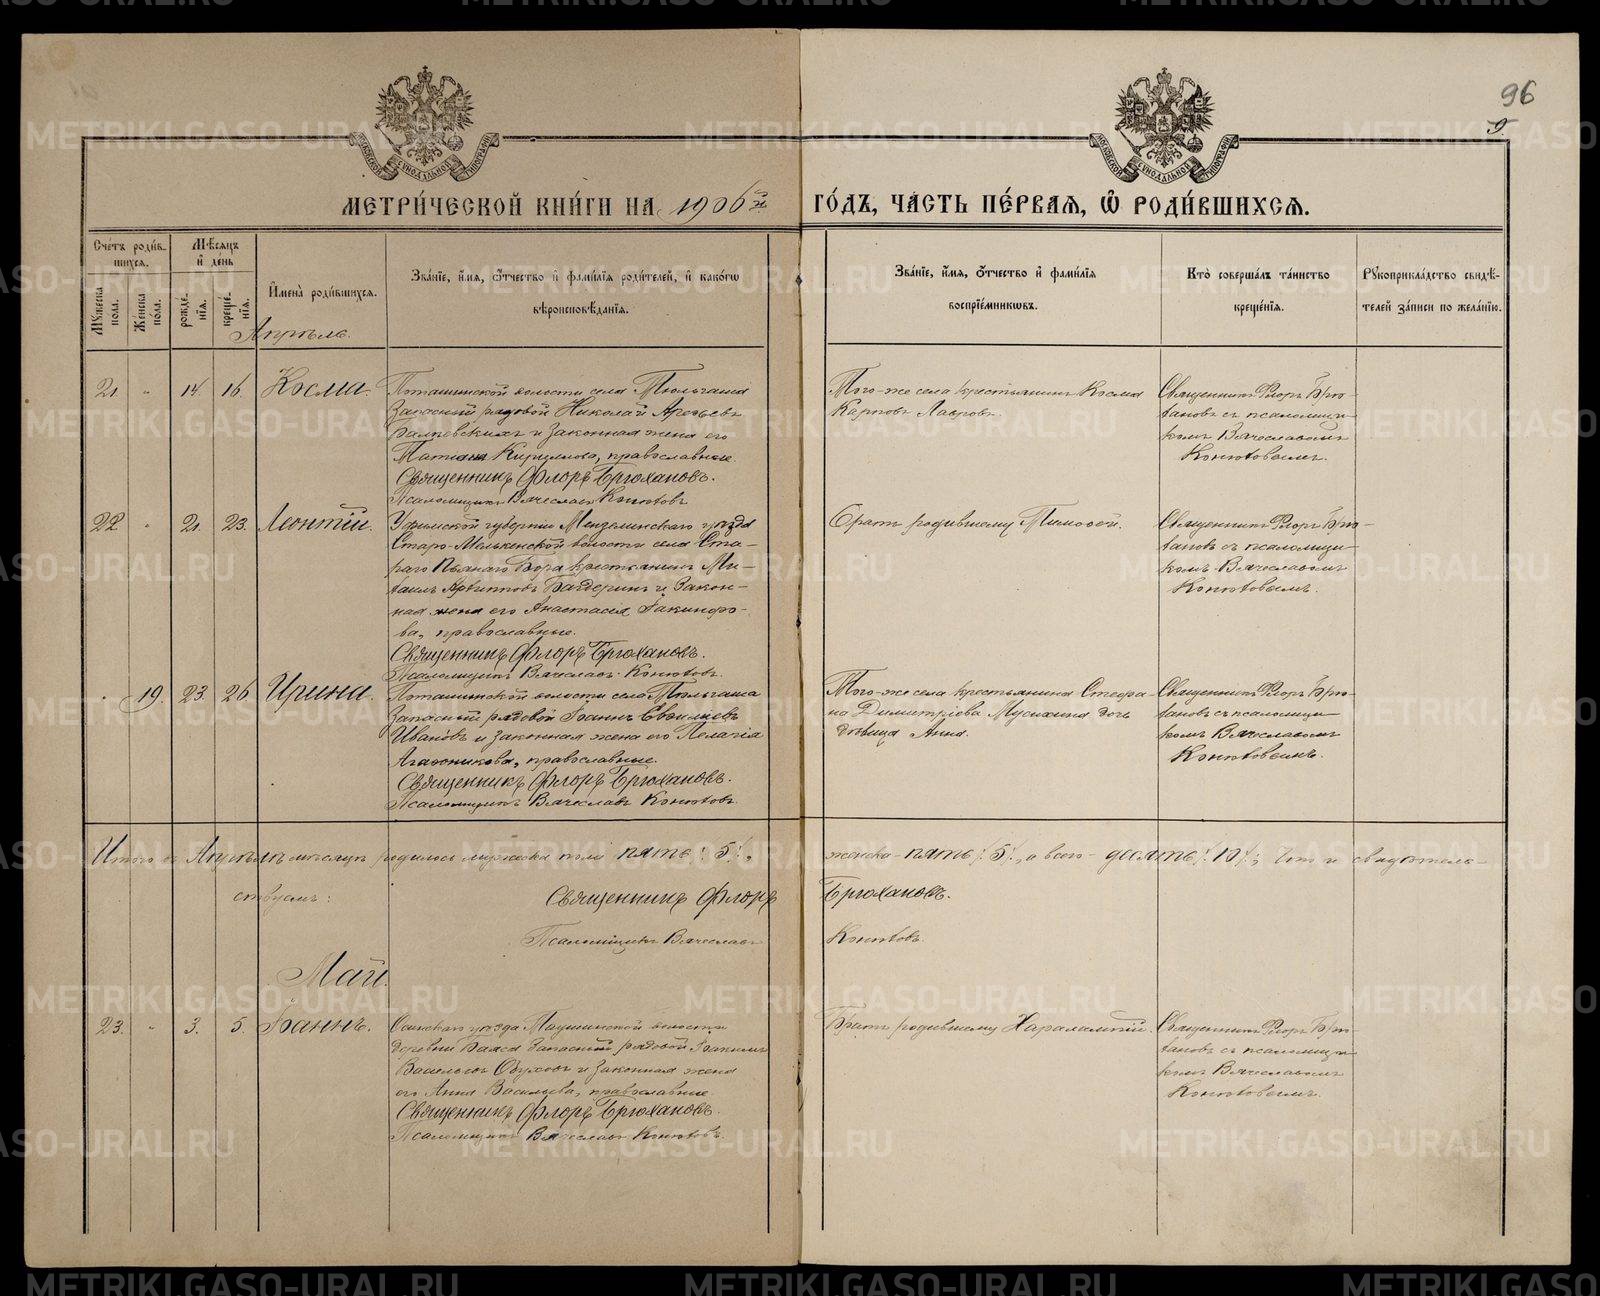 96
9
МОСКОВСКОЙ СУНОДАЛЬНОЙ ТИПОГРАФІИ
МОСКОВСКОЙ СУНОДАЛЬНОЙ ТИПОГРАФІИ
МЕТРИ́ЧЕСКОЙ КНИ́ГИ НА 1906й ГО́ДЪ, ЧА́СТЬ ПЕ́РВАЯ, Ѡ РОДИ́ВШИХСЯ.
Сче́тъ роди́вшихся.
Мѣ́сяцъ и҆ день
И҆мена̀ роди́вшихся.
Зва́нїе, и҆́мя, о҆́тчество и҆ фами́лїя роди́телей, и҆ како́гѡ вѣроисповѣ́данїя.
Зва́нїе, и҆́мя, о҆́тчество и҆ фами́лїя воспрїе́мникѡвъ.
Кто̀ соверша́лъ та́инство креще́нїя.
Рꙋкоприкла́дство свидѣ́телей за́писи по жела́нїю.
Мꙋ́жеска по́ла.
Же́нска по́ла.
рожде́нїѧ.
креще́нїѧ.
Апрѣль.
21. " 14. 16. Косма.
Поташинской волости села Тюльгаша
Запасный рядовой Николай Арефьевъ
и законная жена его
Татиана Кириллова, православные.
Священникъ Флоръ Брюхановъ.
Псаломщикъ Вячеславъ Конюховъ
Того-же села крестьянинъ Косма
Карповъ Лавровъ.
Священникъ Флоръ Брю-
хановъ съ псаломщи-
комъ Вячеславомъ
Конюховымъ.
22 " 21. 23. Леонтій.
Уфимской губерніи Мензелинскаго уѣзда
Старо-Мелькенской волости села Ста-
раго Пьянаго Бора крестьянинъ Ми-
хаилъ Архиповъ Багдеринъ и закон-
ная жена его Анастасія Іакинфо-
ва, православные.
Священникъ Флоръ Брюхановъ.
Псаломщикъ Вячеславъ Конюховъ.
Братъ родившему Тимофей.
Священникъ Флоръ Брю-
хановъ съ псаломщи-
комъ Вячеславомъ
Конюховымъ.
" 19. 23. 26 Ирина.
Поташинской волости села Тюльгаша
Запасный рядовой Іоаннъ
Ивановъ и законная жена его Пелагія
Агафоникова, православные.
Священникъ Флоръ Брюхановъ.
Псаломщикъ Вячеславъ Конюховъ.
Того-же села крестьянина Стефа-
на Димитріева Мусихина дочь
дѣвица Анна.
Священникъ Флоръ Брю-
хановъ съ псаломщи-
комъ Вячеславомъ
Конюховымъ.
Итого въ Апрѣлѣ мѣсяцѣ родилось мужеска пола пять /5/, женска - пять /5/, а всего - десять /10/; что и свидѣтель-
ствуемъ:
Священникъ Флоръ Брюхановъ.
Псаломщикъ Вячеславъ Конюховъ.
Май.
23. " 3. 5. Іоаннъ.
Осинскаго уѣзда волости
деревни Запасный рядовой Іоакимъ
Васильевъ Обуховъ и законная жена
его Анна Васильева, православные.
Священникъ Флоръ Брюхановъ.
Псаломщикъ Вячеславъ Конюховъ.
Братъ родившему Харалампій.
Священникъ Флоръ Брю-
хановъ съ псаломщи-
комъ Вячеславомъ
Конюховымъ.
METRIKI.GASO-URAL.RU